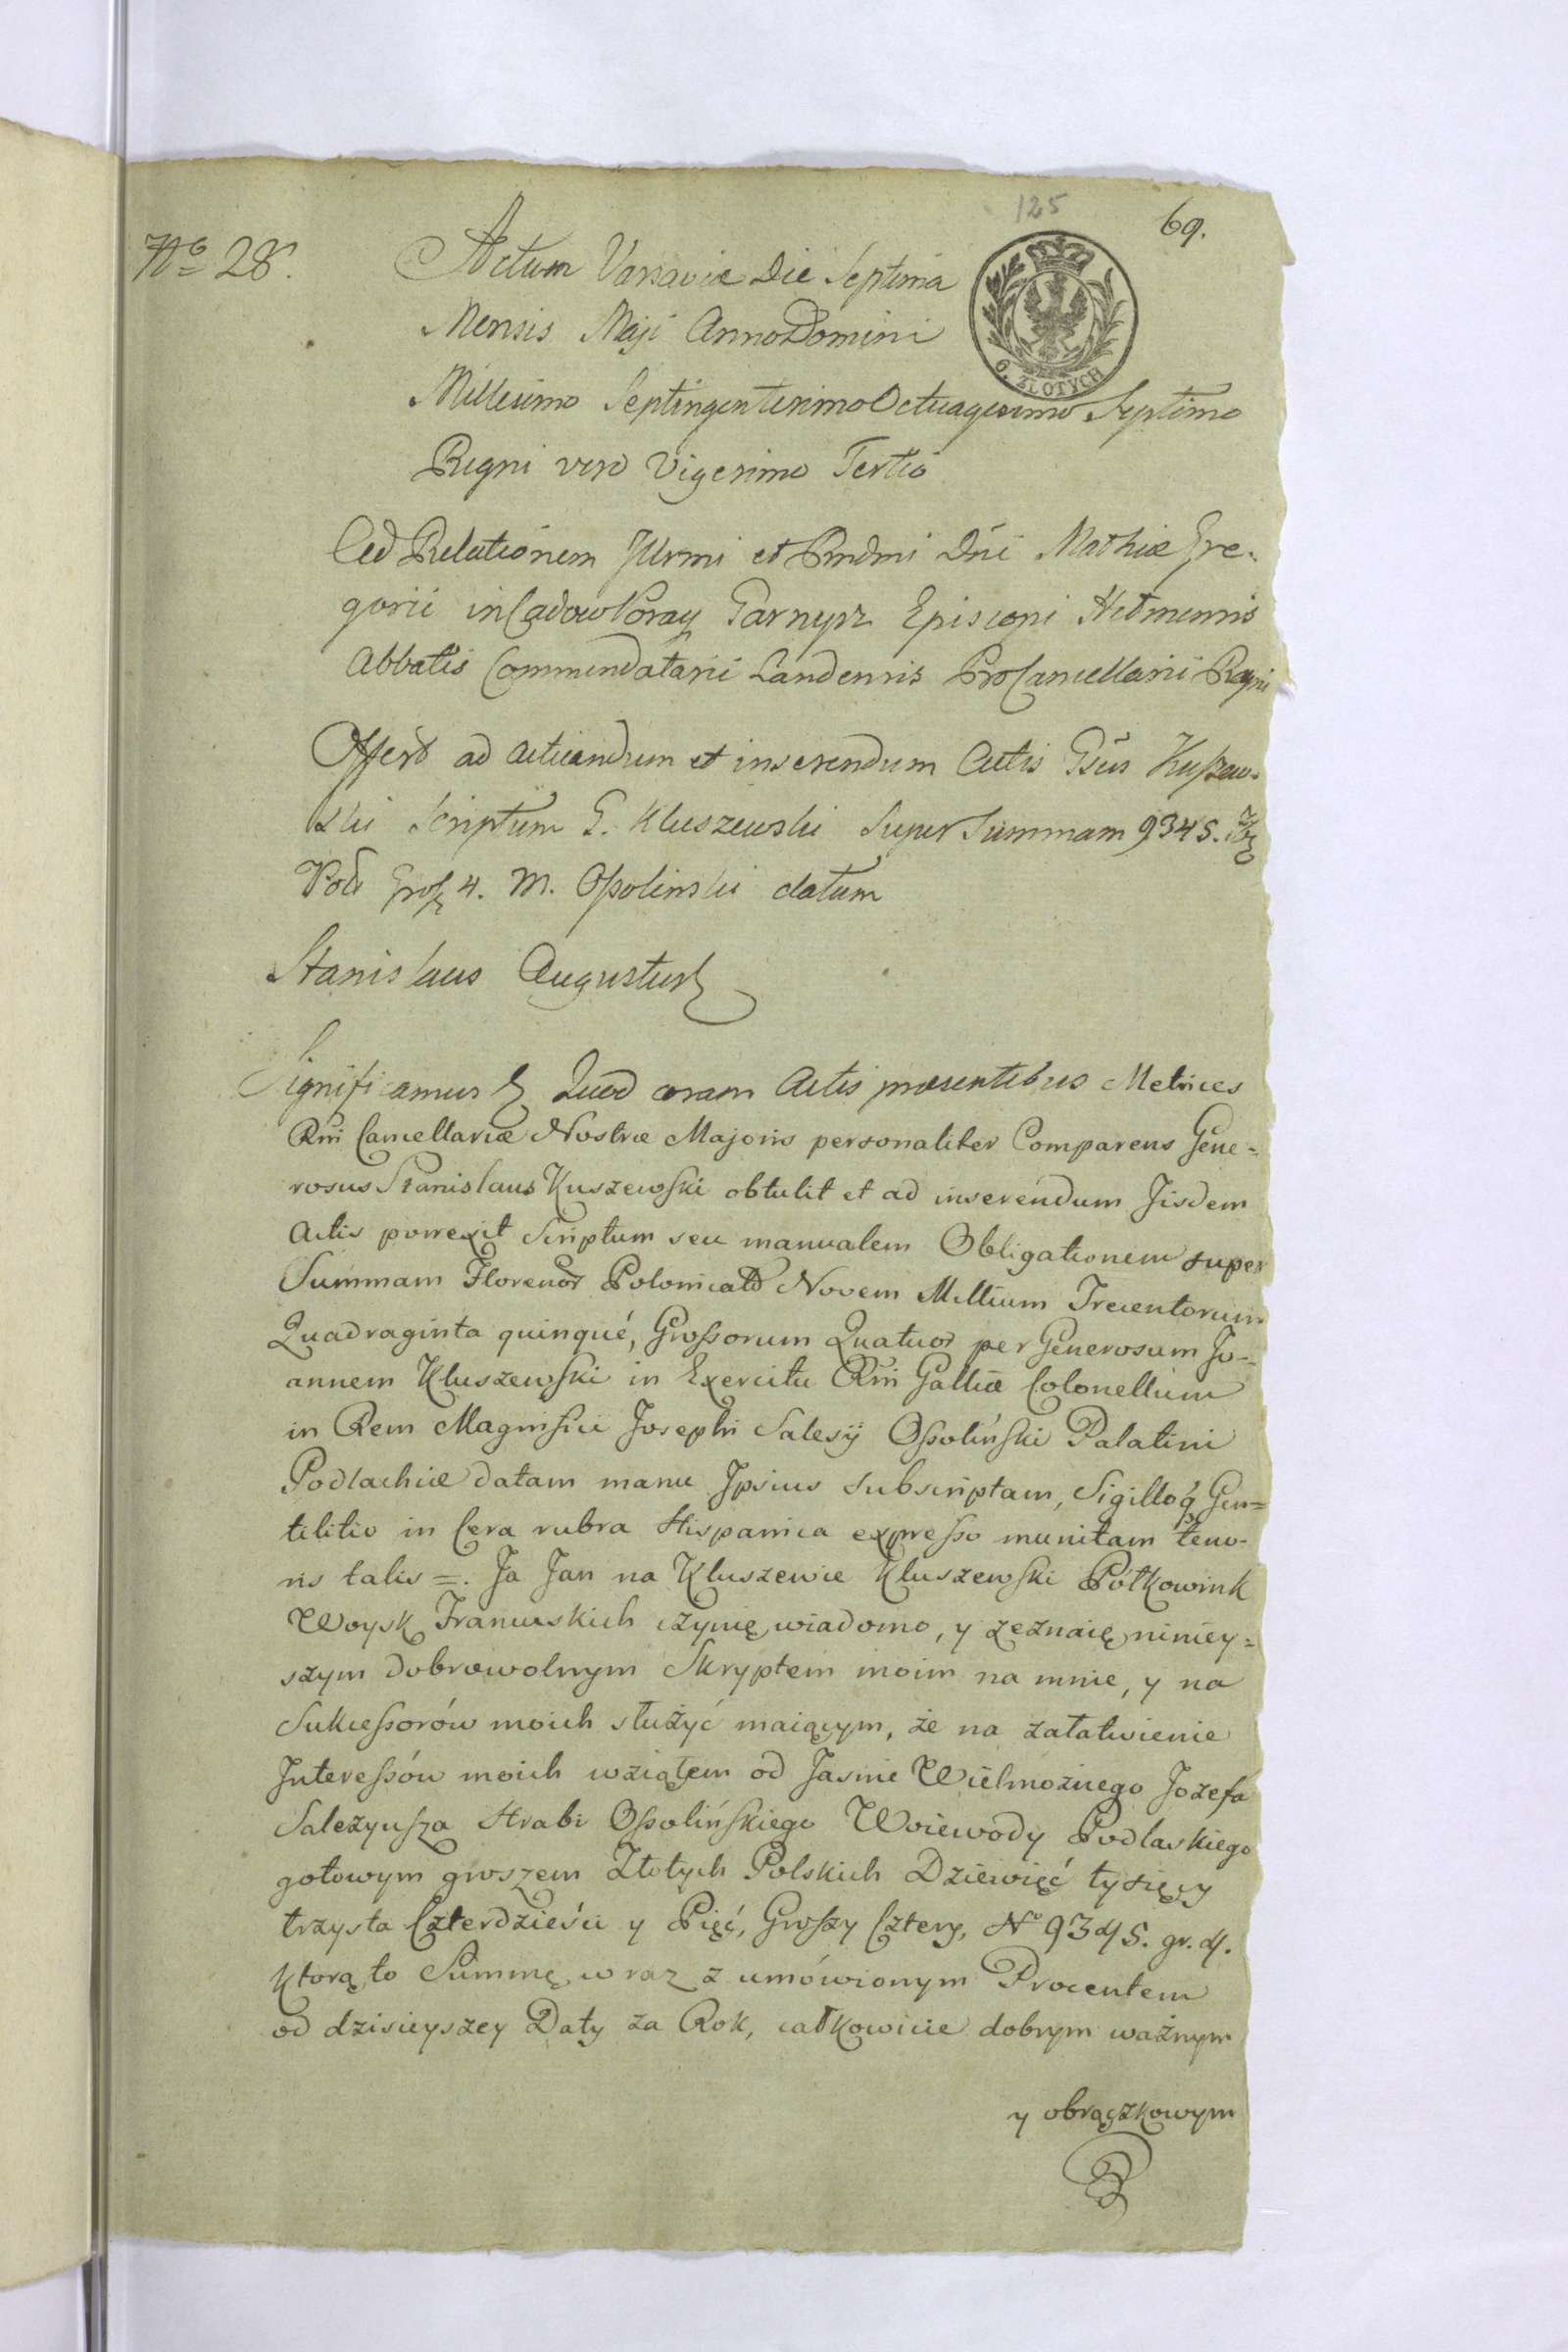 125
69.
No 28.
Actum Varsaviæ Die Septima
Mensis Maji Anno Domini
6. ZŁOTYCH
Millesimo Septingentesimo Octuagesimo Septimo
Regni vero Vigesimo Tertio
Ad Relationem Illrmi et Rndmi Dni Mathiæ Gre-
gorii in Garnysz Episcopi
Abbatis Commendatarii Landensis ProCancellarii Regni
Offert ad acticandum et inserendum Actis Gsus Kuszew-
ski Scriptum G. Kluszewski Super Summam 9345.
4. M. Ossolinski datum
Stanislaus Augustus
Significamus Quod coram Actis præsentibus Metrices
Rni Cancellariæ Nostræ Majoris personaliter Comparens Gene-
rosus Stanislaus Kuszewski obtulit et ad inserendum Jisdem
Actis porrexit Scriptum seu manualem Obligationem super
Summam Florenor Polonical Novem Millium Trecentorum
Quadraginta quinqué, Grossorum Quatuor per Generosum Jo-
annem Kluszewski in Exercitu Rni Galliæ Colonellum
in Rem Magnifici Josephi Salesij Ossoliński Palatini
Podlachiæ datam manu Jpsius subscriptam, Sigilloq Gen=
tilitio in Cera rubra Hispanica expresso munitam teno-
ris talis =. Ja Jan na Kluszewie Kluszewski Półkownik
Woysk Francuskich czynię wiadomo, y zeznaię niniey=
szym dobrowolnym Skryptem moim na mnie, y na
Sukcessorów moich służyć maiącym, że na załatwienie
Jnteressów moich wziąłem od Jasnie Wielmożnego Jozefa
Salezyusza Hrabi Ossolińskiego Woiewody Podlaskiego
gotowym groszem Złotych Polskich Dziewięć tysięcy
trzysta Czterdzieści y Pięć, Groszy Cztery, No 9345. gr. 4.
ktorą to Summę wraz z umówionym Procentem
od dzisieyszey Daty za Rok, całkowicie dobrym ważnym
y obrączkowym